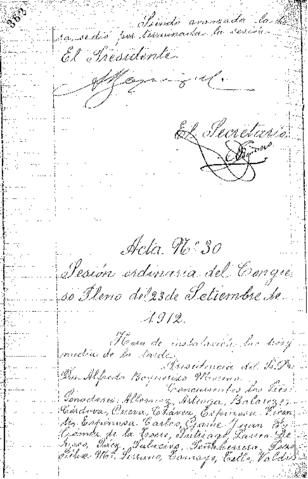 363
Siendo avanzada la ho
ra, se dió por terminada la sesión.
El Presidente
El Secretario
Acta Nº 30
Sesión ordinaria del Congre
so Pleno del 23 de Setiembre de
1912.
Hora de instalación la una y
media de la tarde.
Presidencia del Sr. Dr.
Dn. Alfredo Baquerizo Moreno.
Concurrentes los Srs.
Senadores: Albornoz, Arteaga,
Córdova, Cueva, Chávez, Espinosa
Espinosa Carlos, Game Juan
Gómez de la Torre, Intriago, Larrea
Páez, Palacios, Peñaherrera
Silva Ml. Serrano, Tamayo, Tello, Valdés